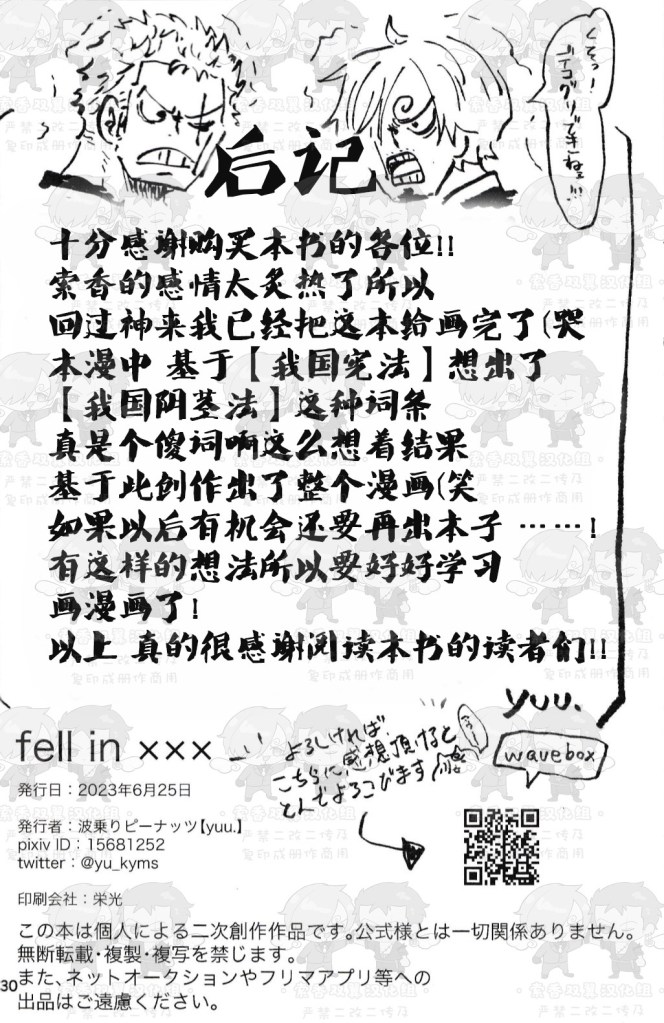 くそっ!
デコグリグリできねェ!!!
后记
十分感谢购买本书的各位!!
索香的感情太炙热了所以
回过神来我已经把这本给画完了(哭
本漫中 基于【我国宪法】想出了
【我国阴茎法】这种词条
真是个傻词啊这么想着结果
基于此创作出了整个漫画(笑
如果以后有机会还要再出本子 ……!
有这样的想法所以要好好学习
画漫画了!
以上 真的很感谢阅读本书的读者们!!
yuu.
fell in ×××
よろしければ
こちらに感想頂けると
とんでよろこびます
wavebox
発行日:2023年6月25日
発行者:波乗りピーナッツ【yuu.】
pixiv ID:15681252
twitter:@yu_kyms
印刷会社:栄光
この本は個人による二次創作作品です。公式様とは一切関係ありません。
無断転載・複製・複写を禁じます。
また、ネットオークションやフリマアプリ等への
出品はご遠慮ください。
30
索香双翼汉化组
严禁二改二传及
复印成册作商用